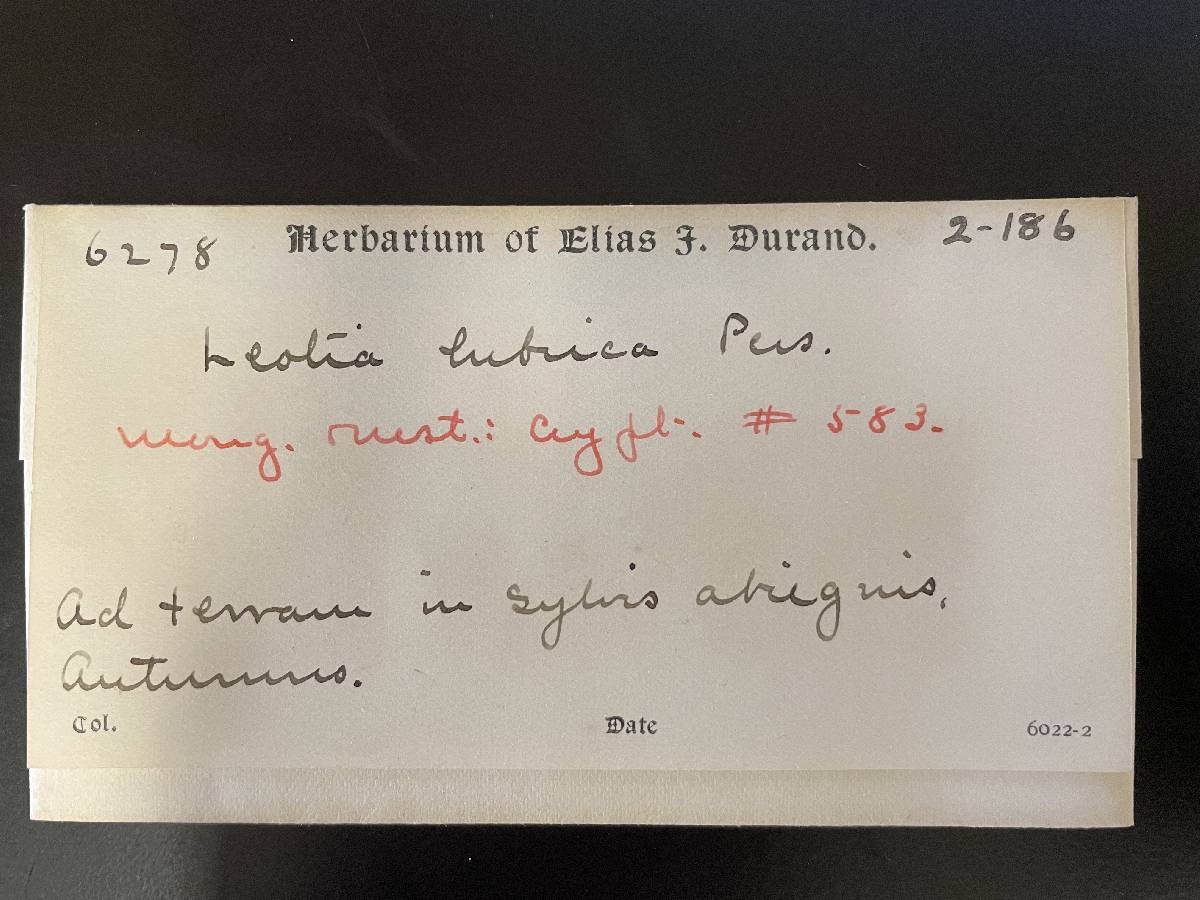 6278 Herbarium of Elias J. Durand. 2-186
Leotia lubrica Pers.
Moug. Nest.: Crypt. # 583.
Ad terram in sylvis abiegnis,
Autumno.
Col. Date 6022-2